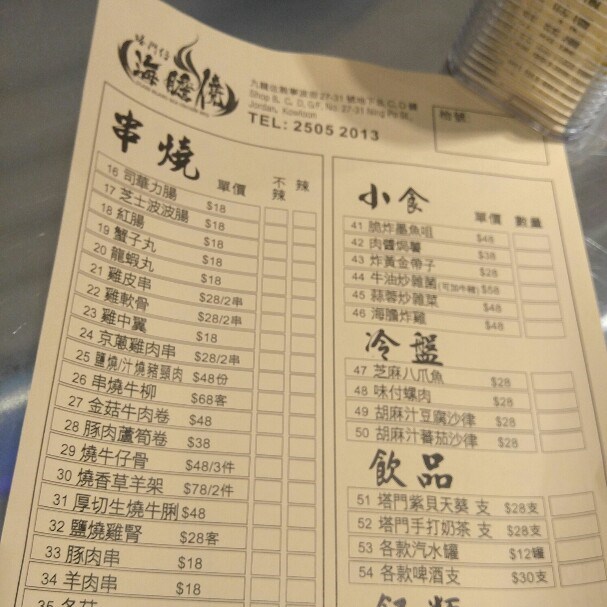 塔門仔
海膽燒
九龍佐敦寧波街27-31號地下B, C, D舖
Shop B, C, D, G/F, No. 27-31 Ning Po St.,
Jordan, Kowloon
TEL: 2505 2013
枱號
串燒
單價 不辣 辣
16 司華力腸 $18
17 芝士波波腸 $18
18 紅腸 $18
19 蟹子丸 $18
20 龍蝦丸 $18
21 雞皮串 $28/2串
22 雞軟骨 $28/2串
23 雞中翼 $18
24 京蔥雞肉串 $28/2串
25 鹽燒/汁燒豬頸肉 $48份
26 串燒牛柳 $68客
27 金菇牛肉卷 $48
28 豚肉蘆筍卷 $38
29 燒牛仔骨 $48/3件
30 燒香草羊架 $78/2件
31 厚切生燒牛脷 $48
32 鹽燒雞腎 $28客
33 豚肉串 $18
34 羊肉串 $18
35 冬菇
小食
單價 數量
41 脆炸墨魚咀 $48
42 肉醬焗薯 $38
43 炸黃金帶子 $28
44 牛油炒雜菌(可加牛柳) $58
45 蒜蓉炒雜菜 $48
46 海膽炸雞 $48
冷盤
47 芝麻八爪魚 $28
48 味付螺肉 $28
49 胡麻汁豆腐沙律 $28
50 胡麻汁蕃茄沙律 $28
飲品
51 塔門紫貝天葵 支 $28支
52 塔門手打奶茶 支 $28支
53 各款汽水罐 $12罐
54 各款啤酒支 $30支